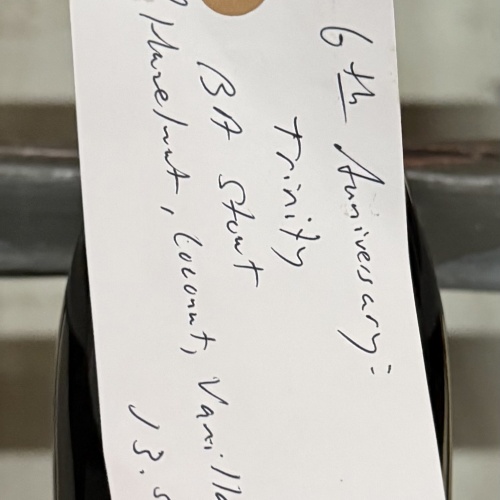 6th Anniversary:
Trinity
BA Stout
Hazelnut, Coconut, Vanilla
13.5